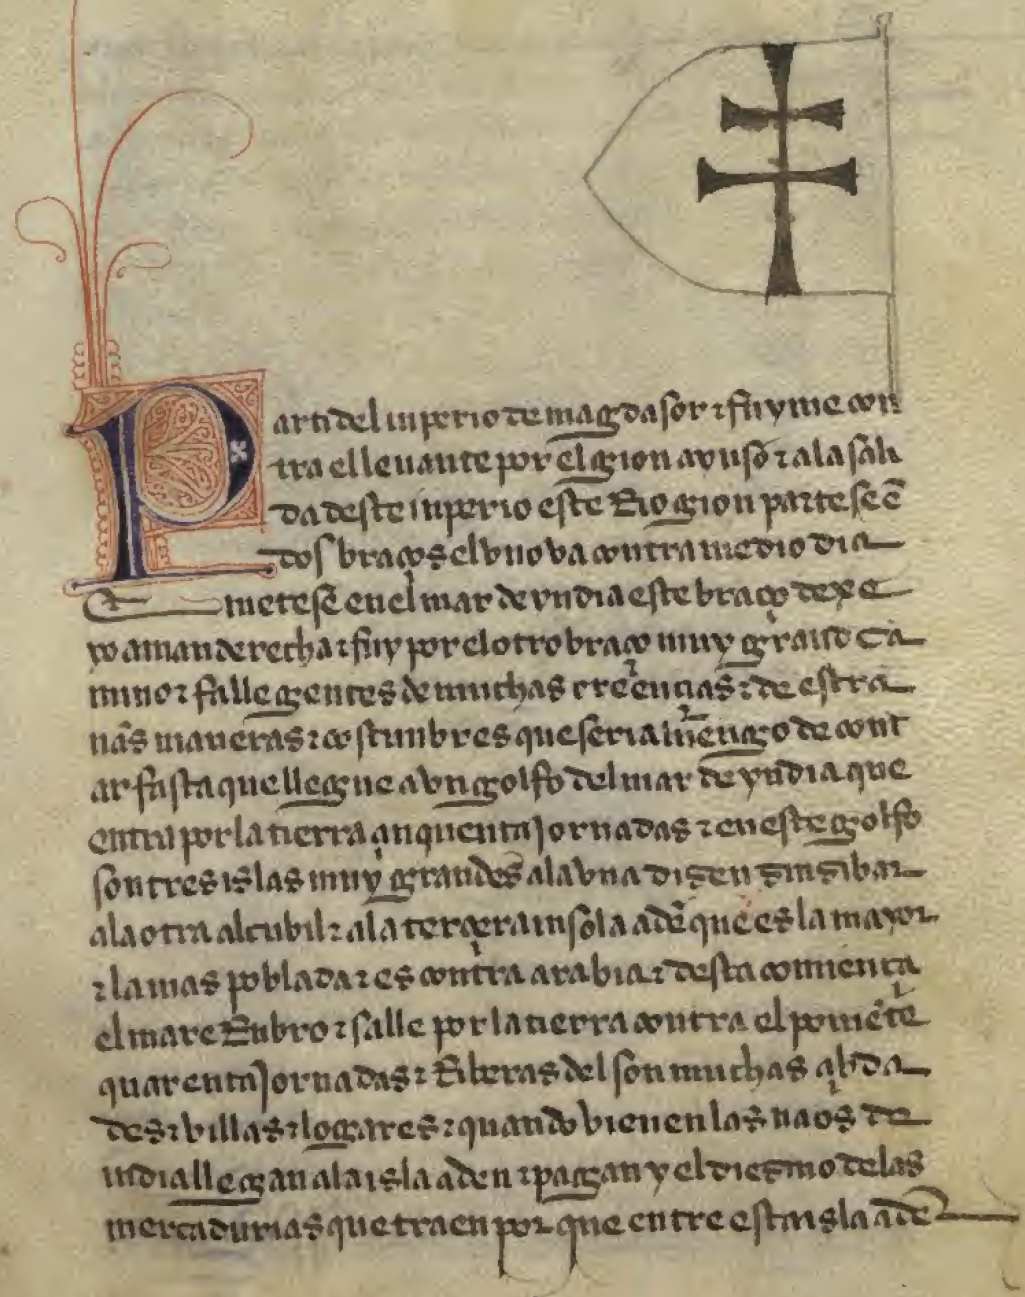 Parti del inperio de magdasor ⁊ fuy me con
tra el leuante por el gion ayuso ⁊ a la sali
da deste inperio este Rio gion parte se ẽ
dos braços el vno va contra medio dia
⁊ mete se en el mar de yndia este braço dexe
yo a man derecha ⁊ fuy por el otro braço muy grand ca
mino ⁊ falle gentes de muchas creençias ⁊ de estra
nãs maneras ⁊ costunbres que seria luẽngo de cont
ar fasta que llegue a vn golfo del mar de yndia que
entra por la tierra çinquenta jornadas ⁊ en este golfo
son tres islas muy grandes a la vna dizen gingibar
a la otra alcubil ⁊ a la terçera insola adẽ que es la mayor
⁊ la mas poblada ⁊ es contra arabia ⁊ desta comiença
el mar e Rubro ⁊ salle por la tierra contra el poniẽte
quarenta jornadas ⁊ Riberas del son muchas çibda
des ⁊ billas ⁊ logares ⁊ quando bienen las naos de
india llegan a la isla aden ⁊ pagan y el diezmo de las
mercadurias que traen por que entre esta isla adẽ